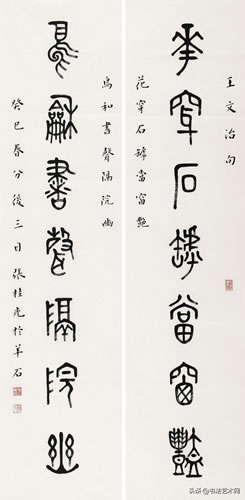 王文治句
花穿石罅當窗豔
花穿石罅當窗艷
鳥和書聲隔院幽
鳥龢書聲隔院幽
癸巳春分後三日張桂光於羊石
头条@书法艺术网